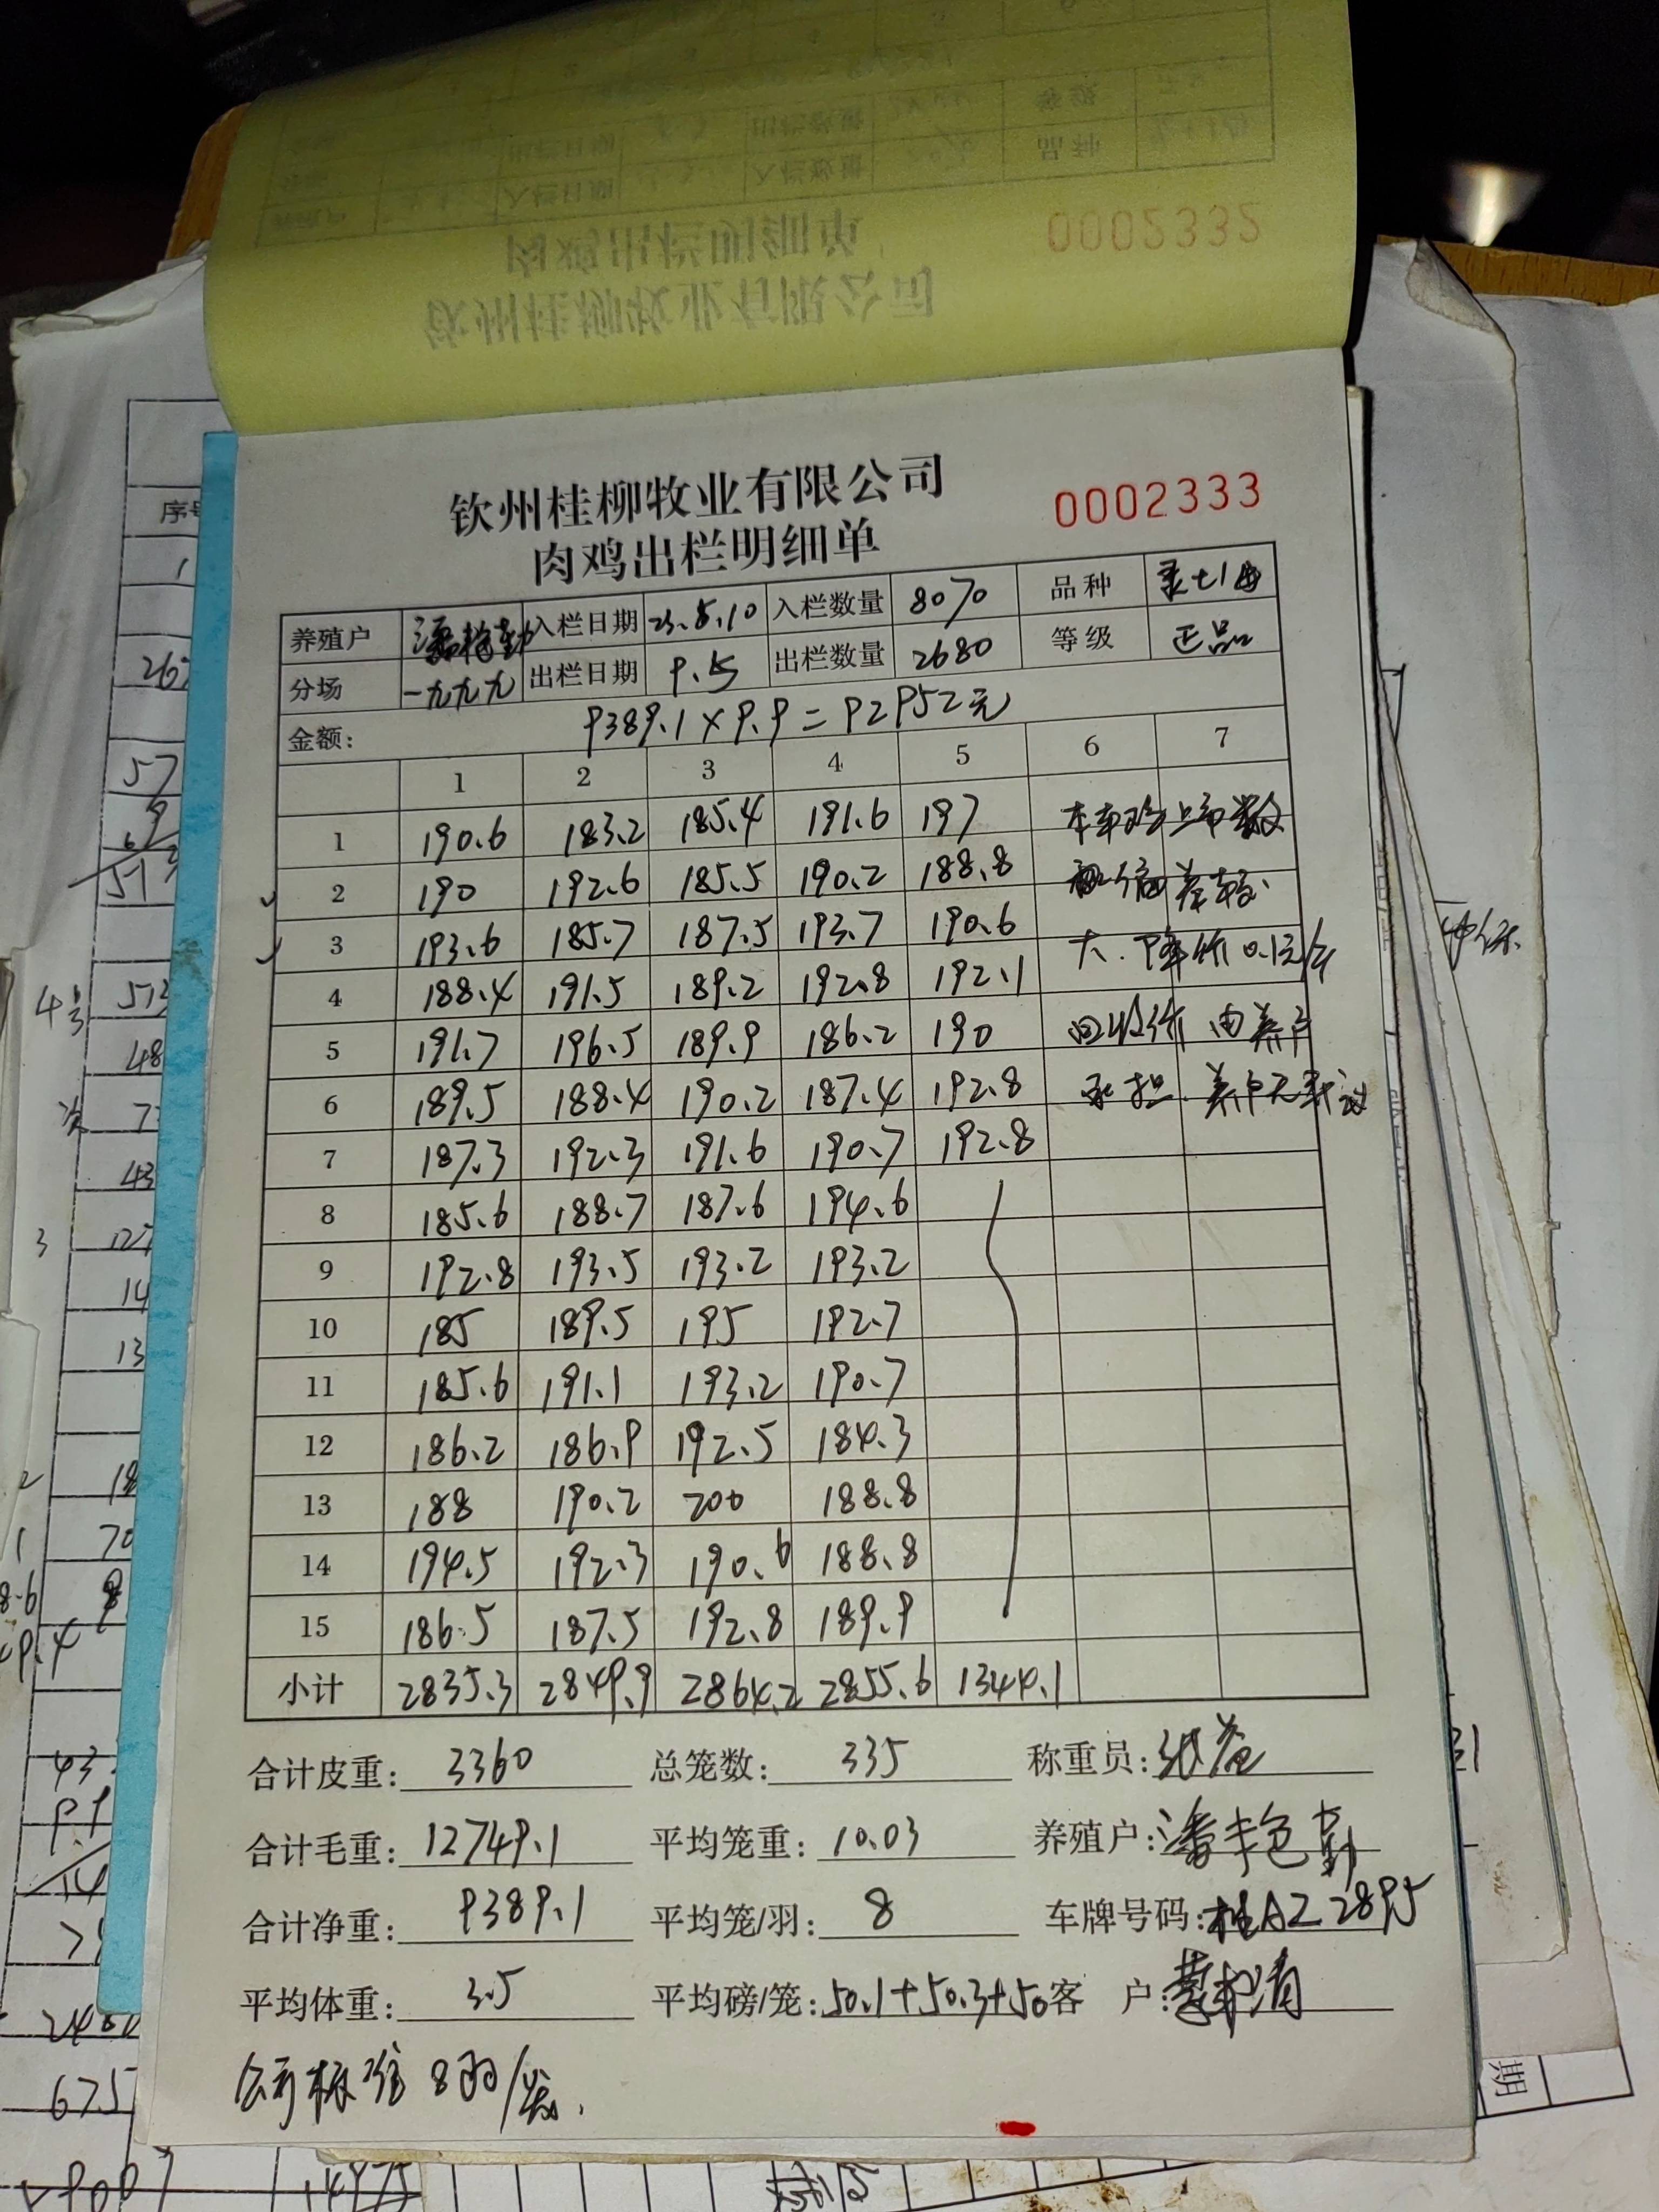 0002332
钦州桂柳牧业有限公司
0002333
肉鸡出栏明细单
养殖户 入栏日期 23.5.10 入栏数量 8070 品种
分场 一九九九 出栏日期 9.15 出栏数量 2680 等级 正品
金额: 9389.1×9.9=92952元
1 2 3 4 5 6 7
1 190.6 183.2 185.4 191.6 197 本车鸡上市数
2 190 192.6 185.5 190.2 188.8 差较
3 193.6 185.7 187.5 193.7 190.6 大.下降价0.1元/斤
4 188.4 191.5 189.2 192.8 192.1
5 191.7 196.5 189.9 186.2 190 回收价由养户
6 189.5 188.4 190.2 187.4 192.8 承担.养户无异议
7 187.3 192.3 191.6 190.7 192.8
8 185.6 188.7 187.6 194.6
9 192.8 193.5 193.2 193.2
10 185 189.5 195 192.7
11 185.6 191.1 193.2 190.7
12 186.2 186.9 192.5 184.3
13 188 190.2 200 188.8
14 194.5 192.3 190.6 188.8
15 186.5 187.5 192.8 189.9
小计 2835.3 2849.9 2864.2 2855.6 1344.1
合计皮重: 3360 总笼数: 335 称重员:
合计毛重: 12749.1 平均笼重: 10.03 养殖户: 潘艳勤
合计净重: 9389.1 平均笼/羽: 8 车牌号码: 桂AZ2895
平均体重: 3.5 平均磅/笼: 50.1+50.3+50 客 户:
8羽/笼.